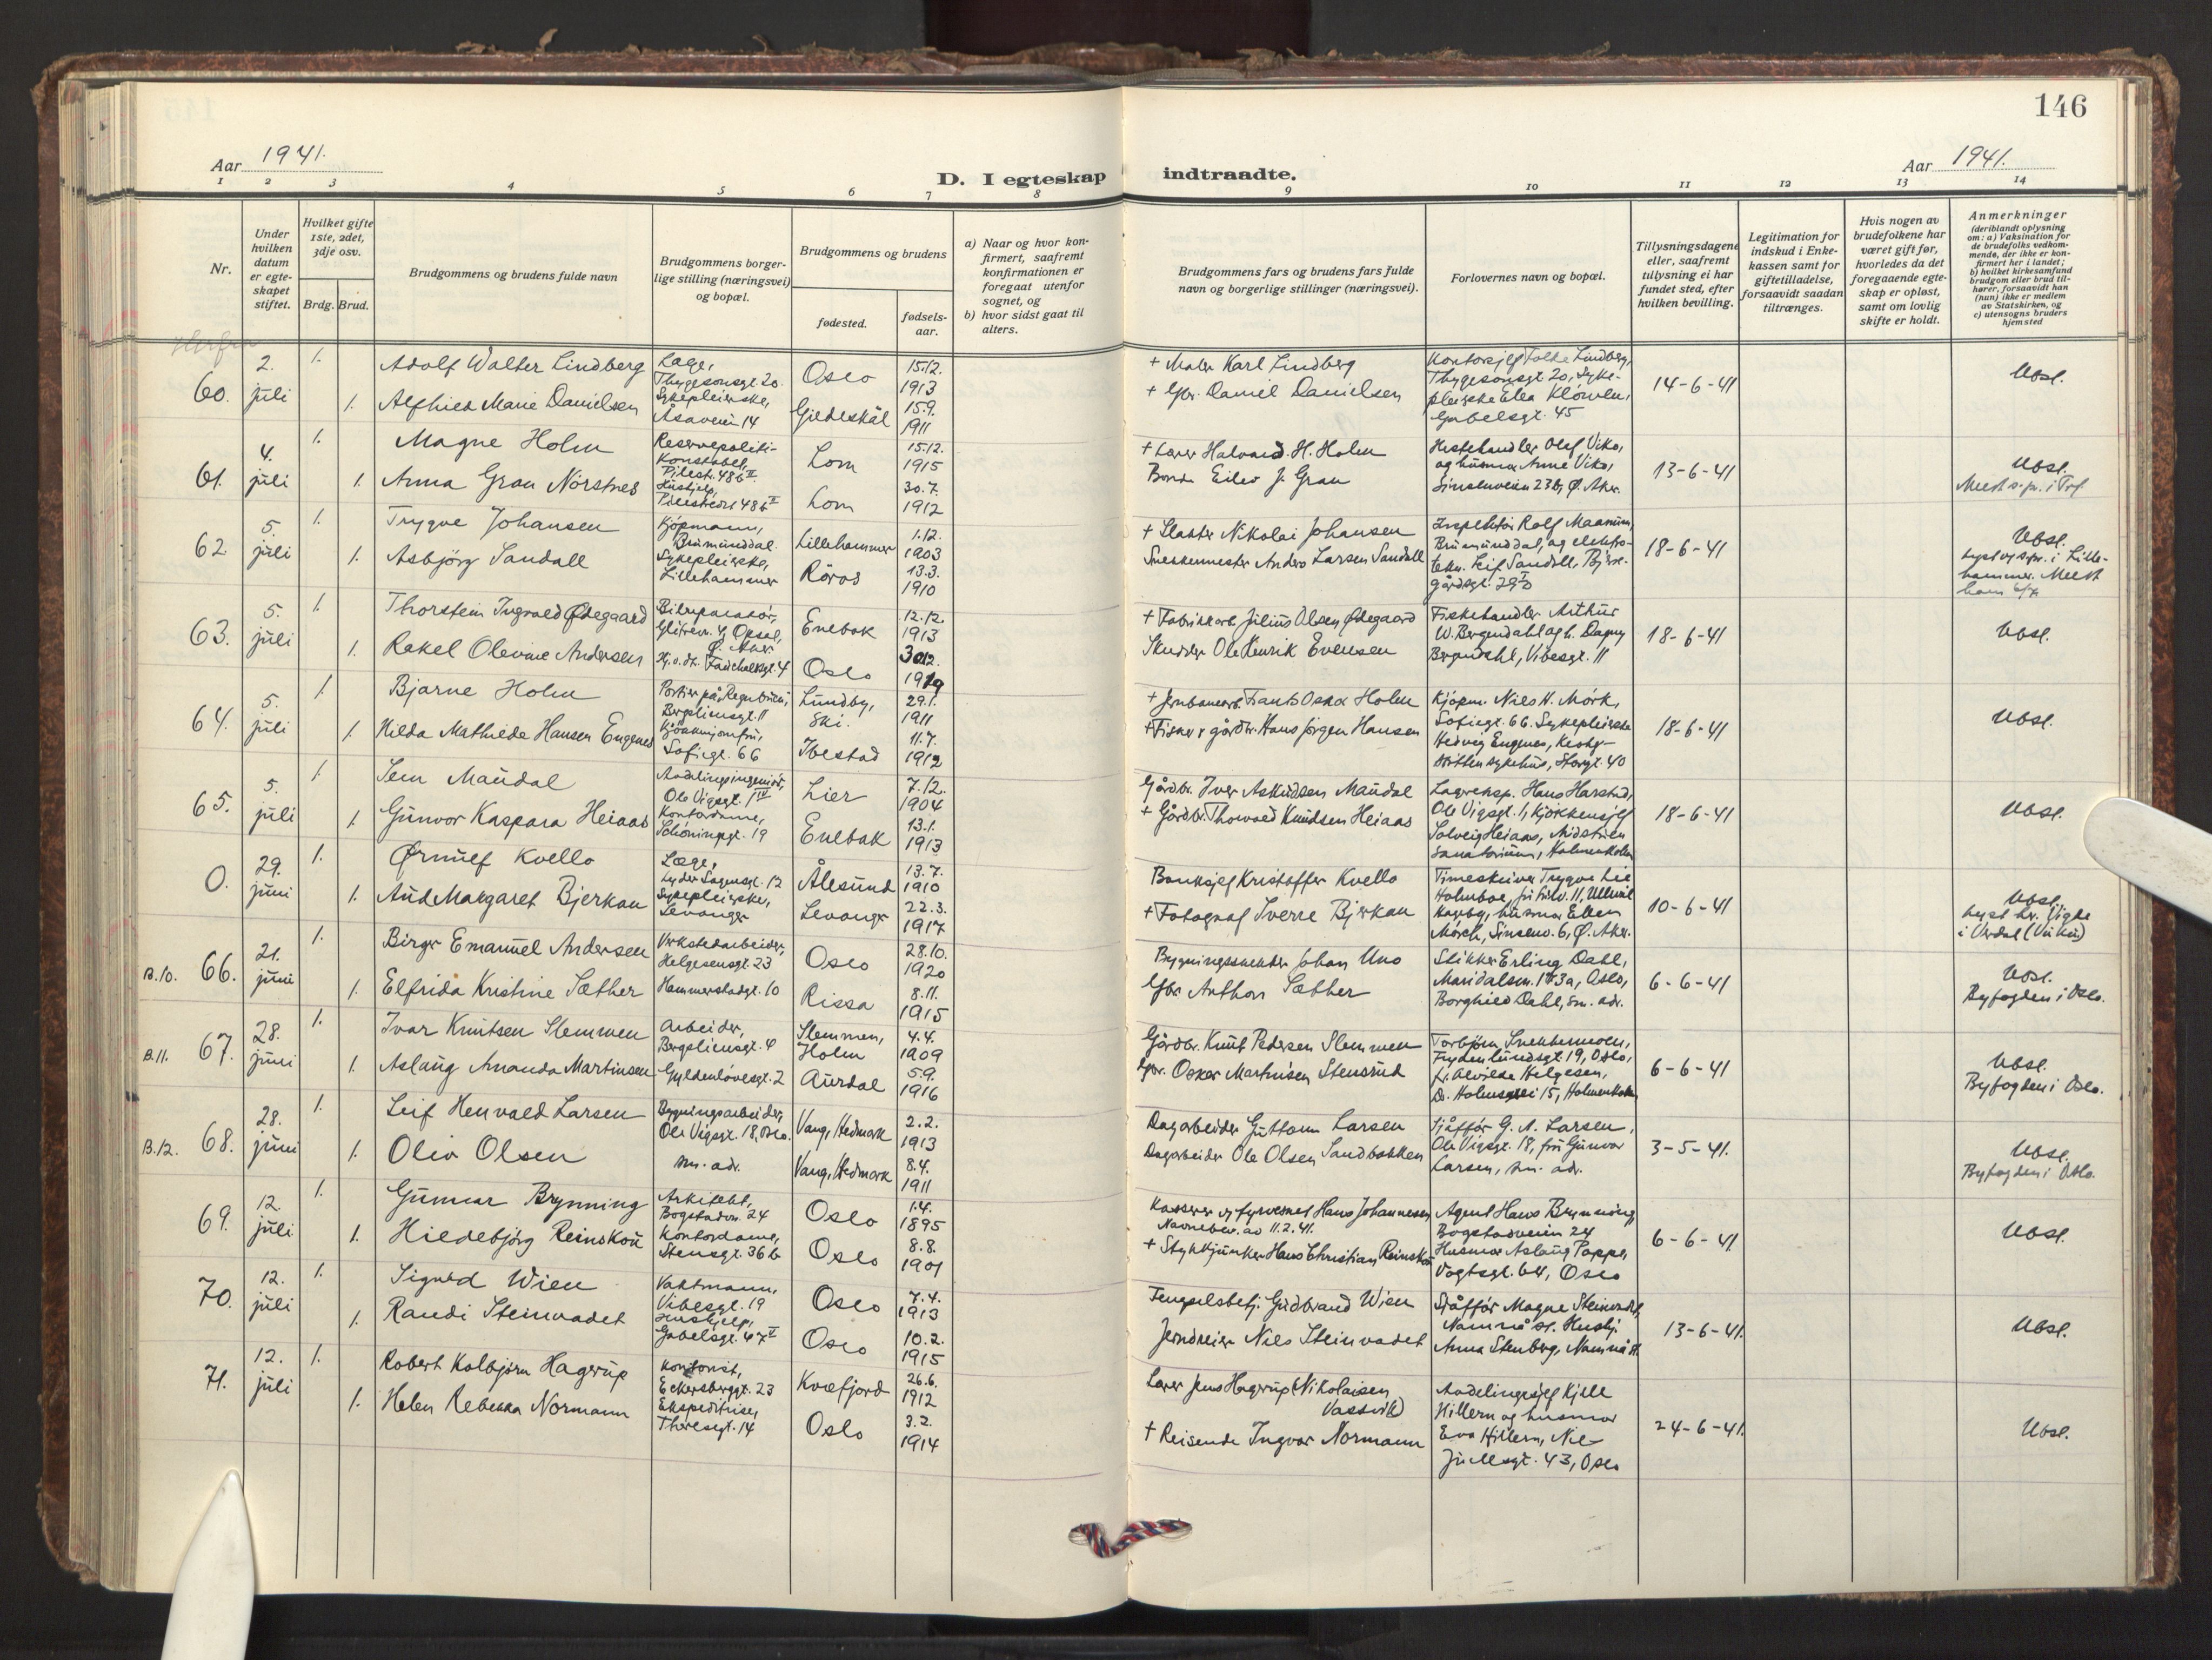 146
Aar 1941.
D. I egteskap indtraadte.
Aar 1941.
1 2 3 4 5 6 7 8 9 10 11 12 13 14
Nr.
Under hvilken datum er egteskapet stiftet.
Hvilket gifte 1ste, 2det, 3dje osv.
Brdg. Brud.
Brudgommens og brudens fulde navn
Brudgommens borgerlige stilling (næringsvei) og bopæl.
Brudgommens og brudens
fødested.
fødselsaar.
a) Naar og hvor konfirmert, saafremt konfirmationen er foregaat utenfor sognet, og
b) hvor sidst gaat til alters.
Brudgommens fars og brudens fars fulde navn og borgerlige stillinger (næringsvei).
Forlovernes navn og bopæl.
Tillysningsdagene eller, saafremt tillysning ei har fundet sted, efter hvilken bevilling.
Legitimation for indskud i Enkekassen samt for giftetilladelse, forsaavidt saadan tiltrænges.
Hvis nogen av brudefolkene har været gift før, hvorledes da det foregaaende egteskap er opløst, samt om lovlig skifte er holdt.
Anmerkninger
(deriblandt oplysning om: a) Vaksination for de brudefolks vedkommende, der ikke er konfirmert her i landet; b) hvilket kirkesamfund brudgom eller brud tilhører, forsaavidt han (hun) ikke er medlem av Statskirken, og c) utensogns bruders hjemsted
60. 2. juli 1. Adolf Walter Lindberg Læge, Thygesonsgt. 20. Oslo 15.12. 1913 + Maler Karl Lindberg Kontorsjef Folke Lindberg, Thygesonsgt. 20, syke- 14-6-41 Ubsl.
1. Alfhild Marie Danielsen Sykepleierske, Åsaveien 14 Gildeskål 15.9. 1911 + Gbr. Daniel Danielsen pleierske Elea Gabelsgt. 45
61. 4. juli 1. Magne Holm Reservepoliti-konstabel, Pilestr. 48b II Lom 15.12. 1915 + Lærer Halvard H. Holm Hestehandler Olaf Viko, og husmor Anne Viko, 13-6-41 Ubsl.
1. Anna Grau Nörstnes Hushjelp, 48b II Lom 30.7. 1912 Bonde Eilev J. Grau Sinsenveien 23b, Ø. Aker.
62 5. juli 1. Trygve Johansen Kjöpmann, Brumunddal. Lillehammer 1.12. 1903 + Slakter Nikolai Johansen Inspektör Rolf Brumunddal, og 18-6-41 Ubsl.
1. Asbjörg Sandall Sykepleierske, Lillehammer Röros 13.3. 1910 Snekkermester Anders Larsen Sandall Leif Sandall, 29 i Lillehammer.
63. 5. juli 1. Thorstein Ingvald Ødegaard Bilreparatör, 4, Opsal, Ø. Aker Enebak 12.12. 1913 + Fabrikkarb. Julius Olsen Ødegaard Fiskehandler Arthur W. Bergendahl og h. Dagny 18-6-41 Ubsl.
1. Rakel Olevine Andersen 4 Oslo 30.12. 1919 Skredder Ole Henrik Evensen Bergendahl, Vibesgt. 11
64. 5. juli 1. Bjarne Holm Portier på Bergsliensgt. 11 Lundby, Ski. 29.1. 1911 + Jernbanearb. Frants Oskar Holm Kjöpm. Niels H. Mörk, Sofiegt. 66. Sykepleierske 18-6-41 Ubsl.
1. Hilda Mathilde Hansen Engenes Kjökkenjomfru, Sofiegt. 66 Ibestad 11.7. 1912 + Fisker & gårdbr. Hans Jörgen Hansen Hedvig Engenes, sykehus, Storgt. 40
65. 5. juli 1. Sem Maudal Avdelingsingeniör, Ole Vigsgt. 1 IV Lier 7.12. 1904 Gårdbr. Iver Askildsen Maudal Lagereksp. Hans Harstad, Ole Vigsgt. 1, 18-6-41 Ubsl.
1. Gunvor Kaspara Heiaas Kontordame, Schöningsgt. 19 Enebak 13.1. 1913 + Gårdbr. Thorvald Knudsen Heiaas Solveig Heiaas, Midtstuen sanatorium, Holmenkollen
0. 29. juni 1. Ørnulf Kvello Læge, Lyder Sagensgt. 12 Ålesund 13.7. 1910 Banksjef Kristoffer Kvello Timeskriver Trygve Lie 11, Ullevål 10-6-41 Ubsl.
1. Aud Margaret Bjerkan Sykepleierske, Levanger Levanger 22.3. 1917 + Fotograf Sverre Bjerkan Haveby, husmor Ellen Mörch, Sinsenv. 6, Ø. Aker. i Verdal (Vuku)
B.10. 66. 21. juni 1. Birger Emanuel Andersen Verkstedarbeider, Helgesensgt. 23 Oslo 28.10. 1920 Bygningssnekker Johan Uno Stikker Erling Dahl, Maridalsvn. Oslo, 6-6-41 Ubsl.
1. Elfrida Kristine Sæther Hammerstadgt. 10 Rissa 8.11. 1915 Gbr. Anthon Sæther Borghild Dahl, sm. adr. Byfogden i Oslo.
B.11. 67. 28. juni 1. Ivar Knutsen Slemmen Arbeider, Bergsliensgt. 4 Slemmen, Holm 4.4. 1909 Gårdbr. Knut Pedersen Slemmen Torbjörn Snekkermoen, Frydenlundsgt. 19, Oslo, 6-6-41 Ubsl.
1. Aslaug Ananda Martinsen Gyldenlövesgt. 2 Aurdal 5.9. 1916 Gbr. Oskar Martinsen Stensrud fr. Alvilde Helgesen, Dr. Holmsvei 15, Holmenkollen Byfogden i Oslo.
B.12. 68. 28. juni 1. Leif Henvald Larsen Bygningsarbeider, Ole Vigsgt. 18, Oslo. Vang, Hedmark 2.2. 1913 Dagarbeider Guttorm Larsen Sjåför G. A. Larsen, Ole Vigsgt. 18, fru Gunvor 3-5-41. Ubsl.
1. Oliv Olsen sm. adr. Vang, Hedmark 8.4. 1911 Dagarbeider Ole Olsen Sandbakken Larsen, sm. adr. Byfogden i Oslo.
69. 12. juli 1. Gunnar Brynning Arkitekt, Bogstadvn. 24 Oslo 1.4. 1895 Kasserer og fyrvesenet Hans Johannesen Navnebev. av 11.2.41. Agent Hans Brynning, Bogstadveien 24 6-6-41 Ubsl.
1. Hildebjörg Reinskou Kontordame, Stensgt. 36b Oslo 8.8. 1901 + Stykkjunker Hans Christian Reinskou Husmor Aslaug Pappe, Vogtsgt. 64, Oslo
70. 12. juli 1. Sigurd Wien Vaktmann, Vibesgt. 19 Oslo 7.4. 1913 Fengselsbetj. Gudbrand Wien Sjåfför Magne Steinvadet, Namnå st. Hushj. 13-6-41. Ubsl.
1. Randi Steinvadet Hushjelp, Gabelsgt. 47 Oslo 10.2. 1915 Jerndreier Nils Steinvadet Anna Stenberg, Namnå st.
71. 12. juli 1. Robert Kolbjörn Hagerup Kontorist, Eckersbergsgt. 23 Kvæfjord 26.6. 1912 Lærer Jens Hagerup (Nikolaisen Vassvik) Avdelingssjef Kjell Hillern og husmor 24-6-41. Ubsl.
1. Helen Rebekka Normann Ekspeditrise, Theresgt. 14 Oslo 3.2. 1914 + Reisende Ingvar Normann Eva Hillern, Niels Juellsgt. 43, Oslo